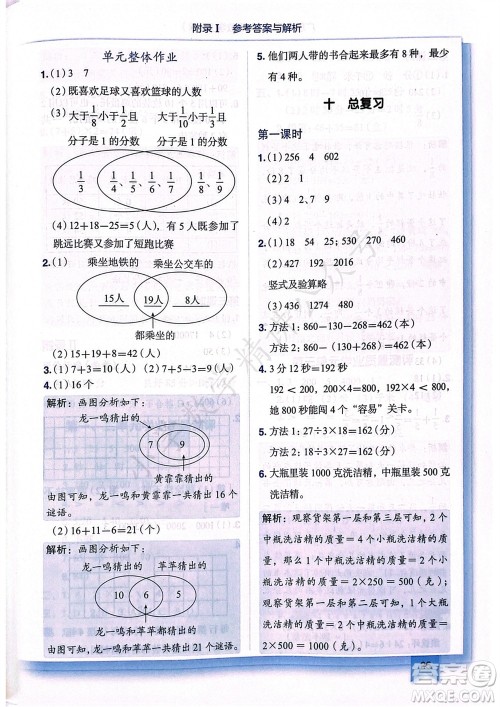 附录Ⅰ 参考答案与解析
单元整体作业
1.(1)3 7
(2)既喜欢足球又喜欢篮球的人数
(3) 大于1/8小于且 大于1/10小于且
分子是1的分数 分子是1的分数
1/3 1/4、1/5、1/6、1/7
(4)12+18-25=5(人),有5人既参加了
跳远比赛又参加了短跑比赛
2.(1) 乘坐地铁的 乘坐公交车的
15人 19人 8人
都乘坐的
(2)15+19+8=42(人)
3.(1)7+3=10(人) (2)7+5-3=9(人)
4.(1)16个
解析:画图分析如下:
龙一鸣猜出的
7 9
黄霏霏猜出的
由图可知,龙一鸣和黄霏霏共猜出16个
谜语。
(2)16+11-6=21(个)
解析:画图分析如下:
龙一鸣猜出的 苹苹猜出的
10 6 5
由图可知,
龙一鸣和苹苹都猜出21个谜语。
5.他们两人带的书合起来最多有8种,最少
有4种。
十 总复习
第一课时
1.(1)256 4 602
(2)2 1
(3)9
(4)2
2.(1)18 54 25;530 270 460
(2)427 192 2016
竖式及验算略
(3)436 1274 480
3.方法1:860-130-268=462(本)
方法2:860-(130+268)=462(本)
4.3分12秒=192秒
192<200 200×4=800 192×4<800,
她800秒能闯4个“容易”关卡。
5.方法1:18÷2×18=162(分)
方法2:27÷3×18=162(分)
6.大瓶里装1000克洗洁精,中瓶里装500克
洗洁精。
解析:观察货架第一层和第三层可知,2个
中瓶洗洁精的质量=4个小瓶洗洁精的质
量,那么1个中瓶洗洁精的质量=2个小瓶
洗洁精的质量=2×250=500(克)。
观察货架第一层和第二层可知,1个大瓶
洗洁精的质量=2个中瓶洗洁精的质量=
2×500=1000(克)。